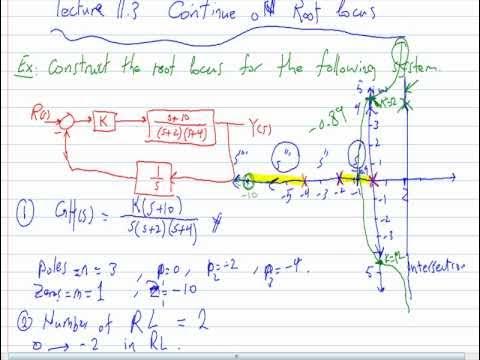 lecture 11.3 Continue of Root locus
Ex: Construct the root locus for the following system.
R(s) K s+10 / (s+2)(s+4) Y(s)
-
1/s
-0.84
5
4
3
2
1
-10 -5 -4 -3 -2 -1 2
-1
-2
-3
5
Intersection
① GH(s) = K(s+10) / s(s+2)(s+4)
Poles = n = 3 , p=0, p2=-2, p3=-4.
Zeros = m = 1 , z=-10
② Number of RL = 2
0 → -2 in RL.